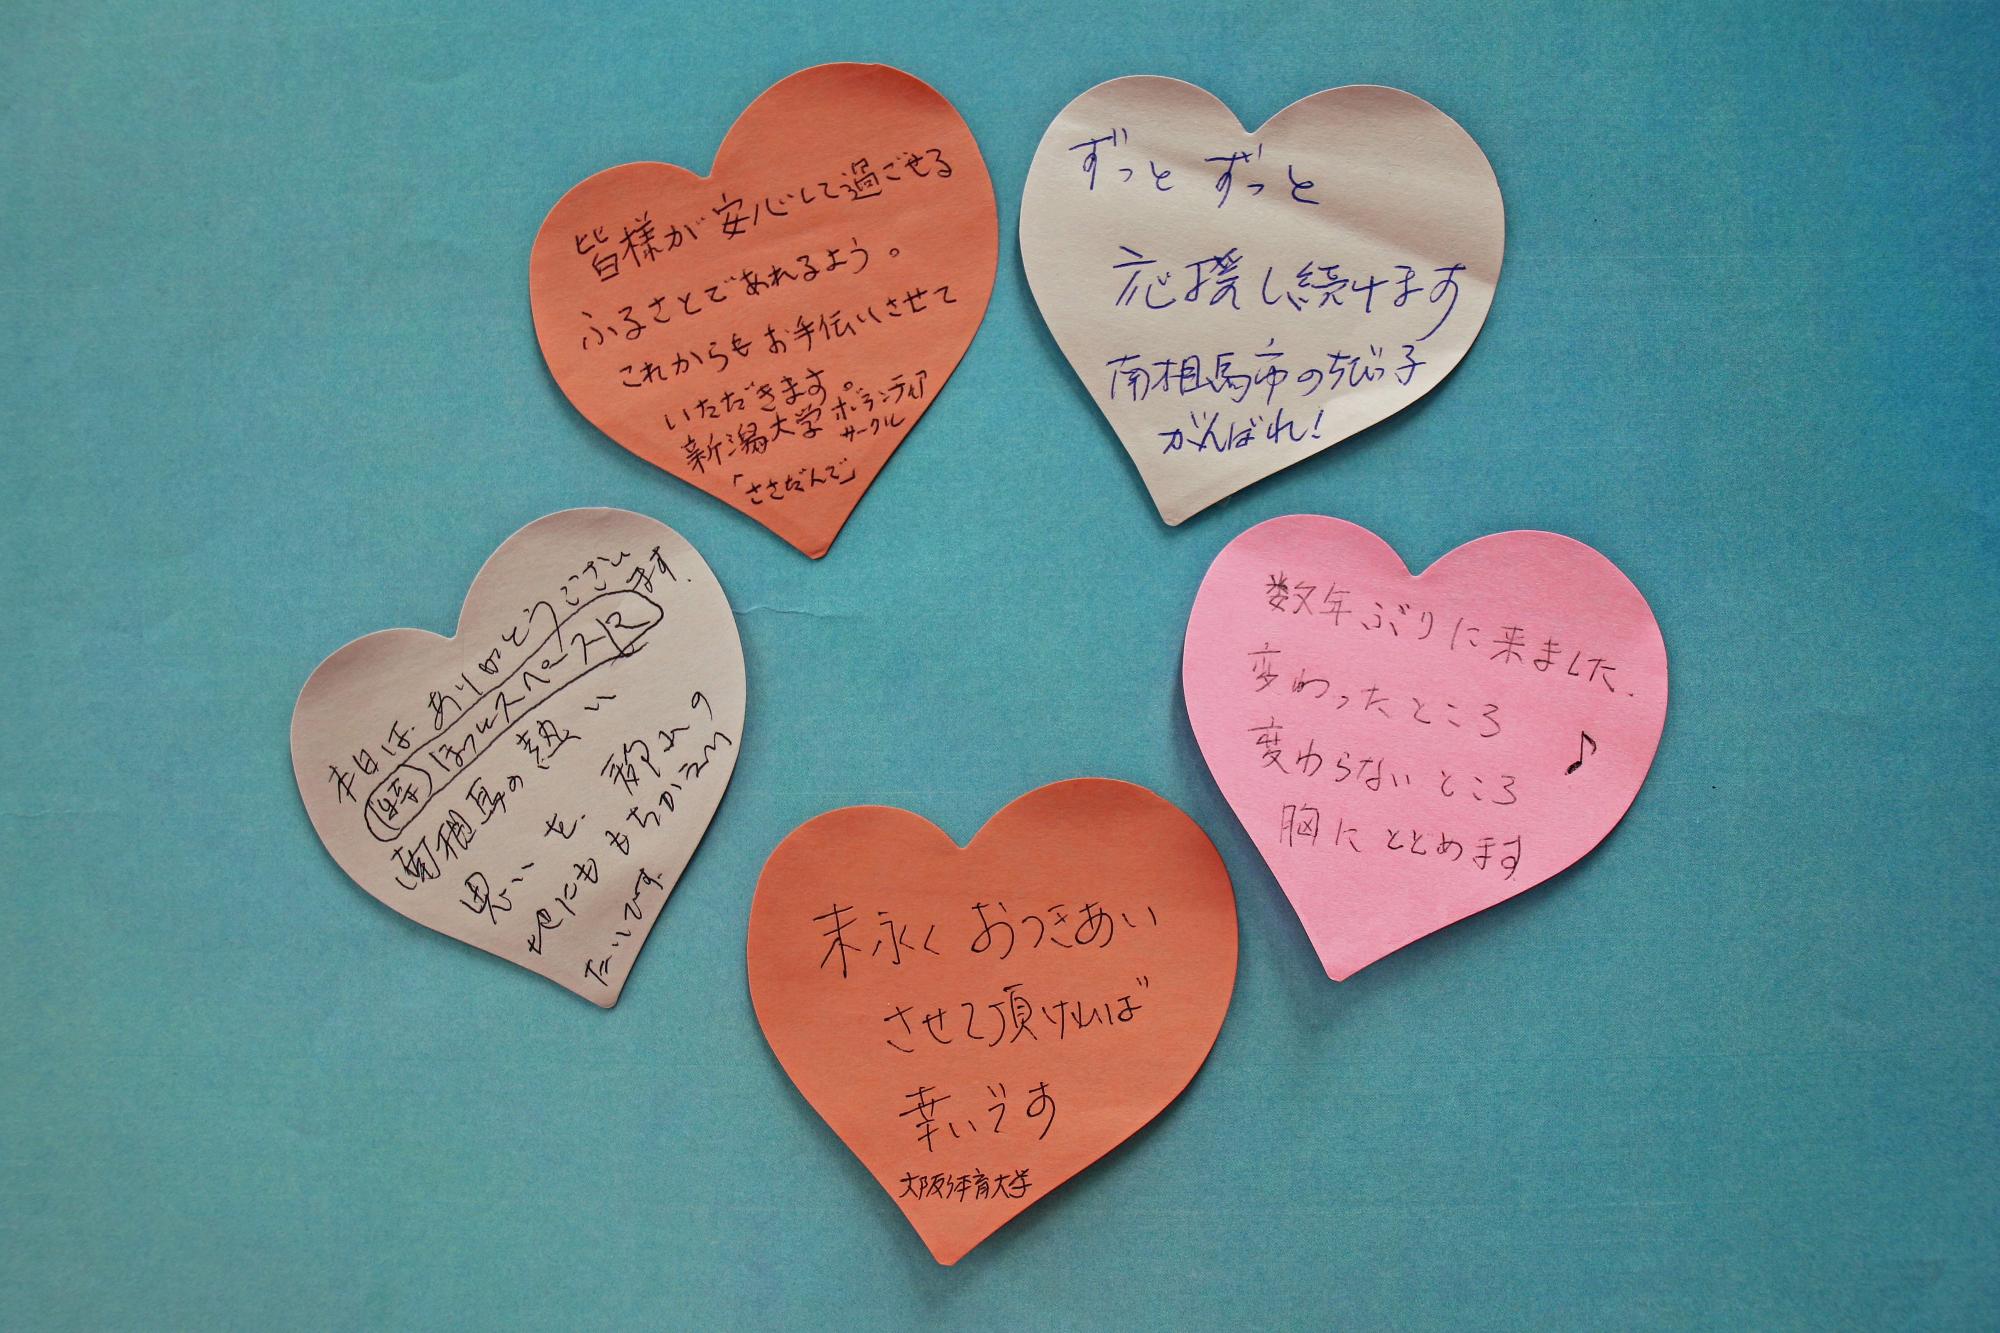 皆様が安心して過ごせる
ふるさとであれるよう。
これからもお手伝いさせて
いただきます。
新潟大学ボランティア
サークル
「ささだんで」
ずっと ずっと
応援し続けます
南相馬市のちびっ子
がんばれ!
本日は、ありがとうござい
ます.
ほっとスペース
南相馬の熱い
思いを、
地にももちかえり
たいです.
数年ぶりに来ました.
変わったところ
変わらないところ ♪
胸にとどめます
末永く おつきあい
させて頂ければ
幸いです
大阪体育大学